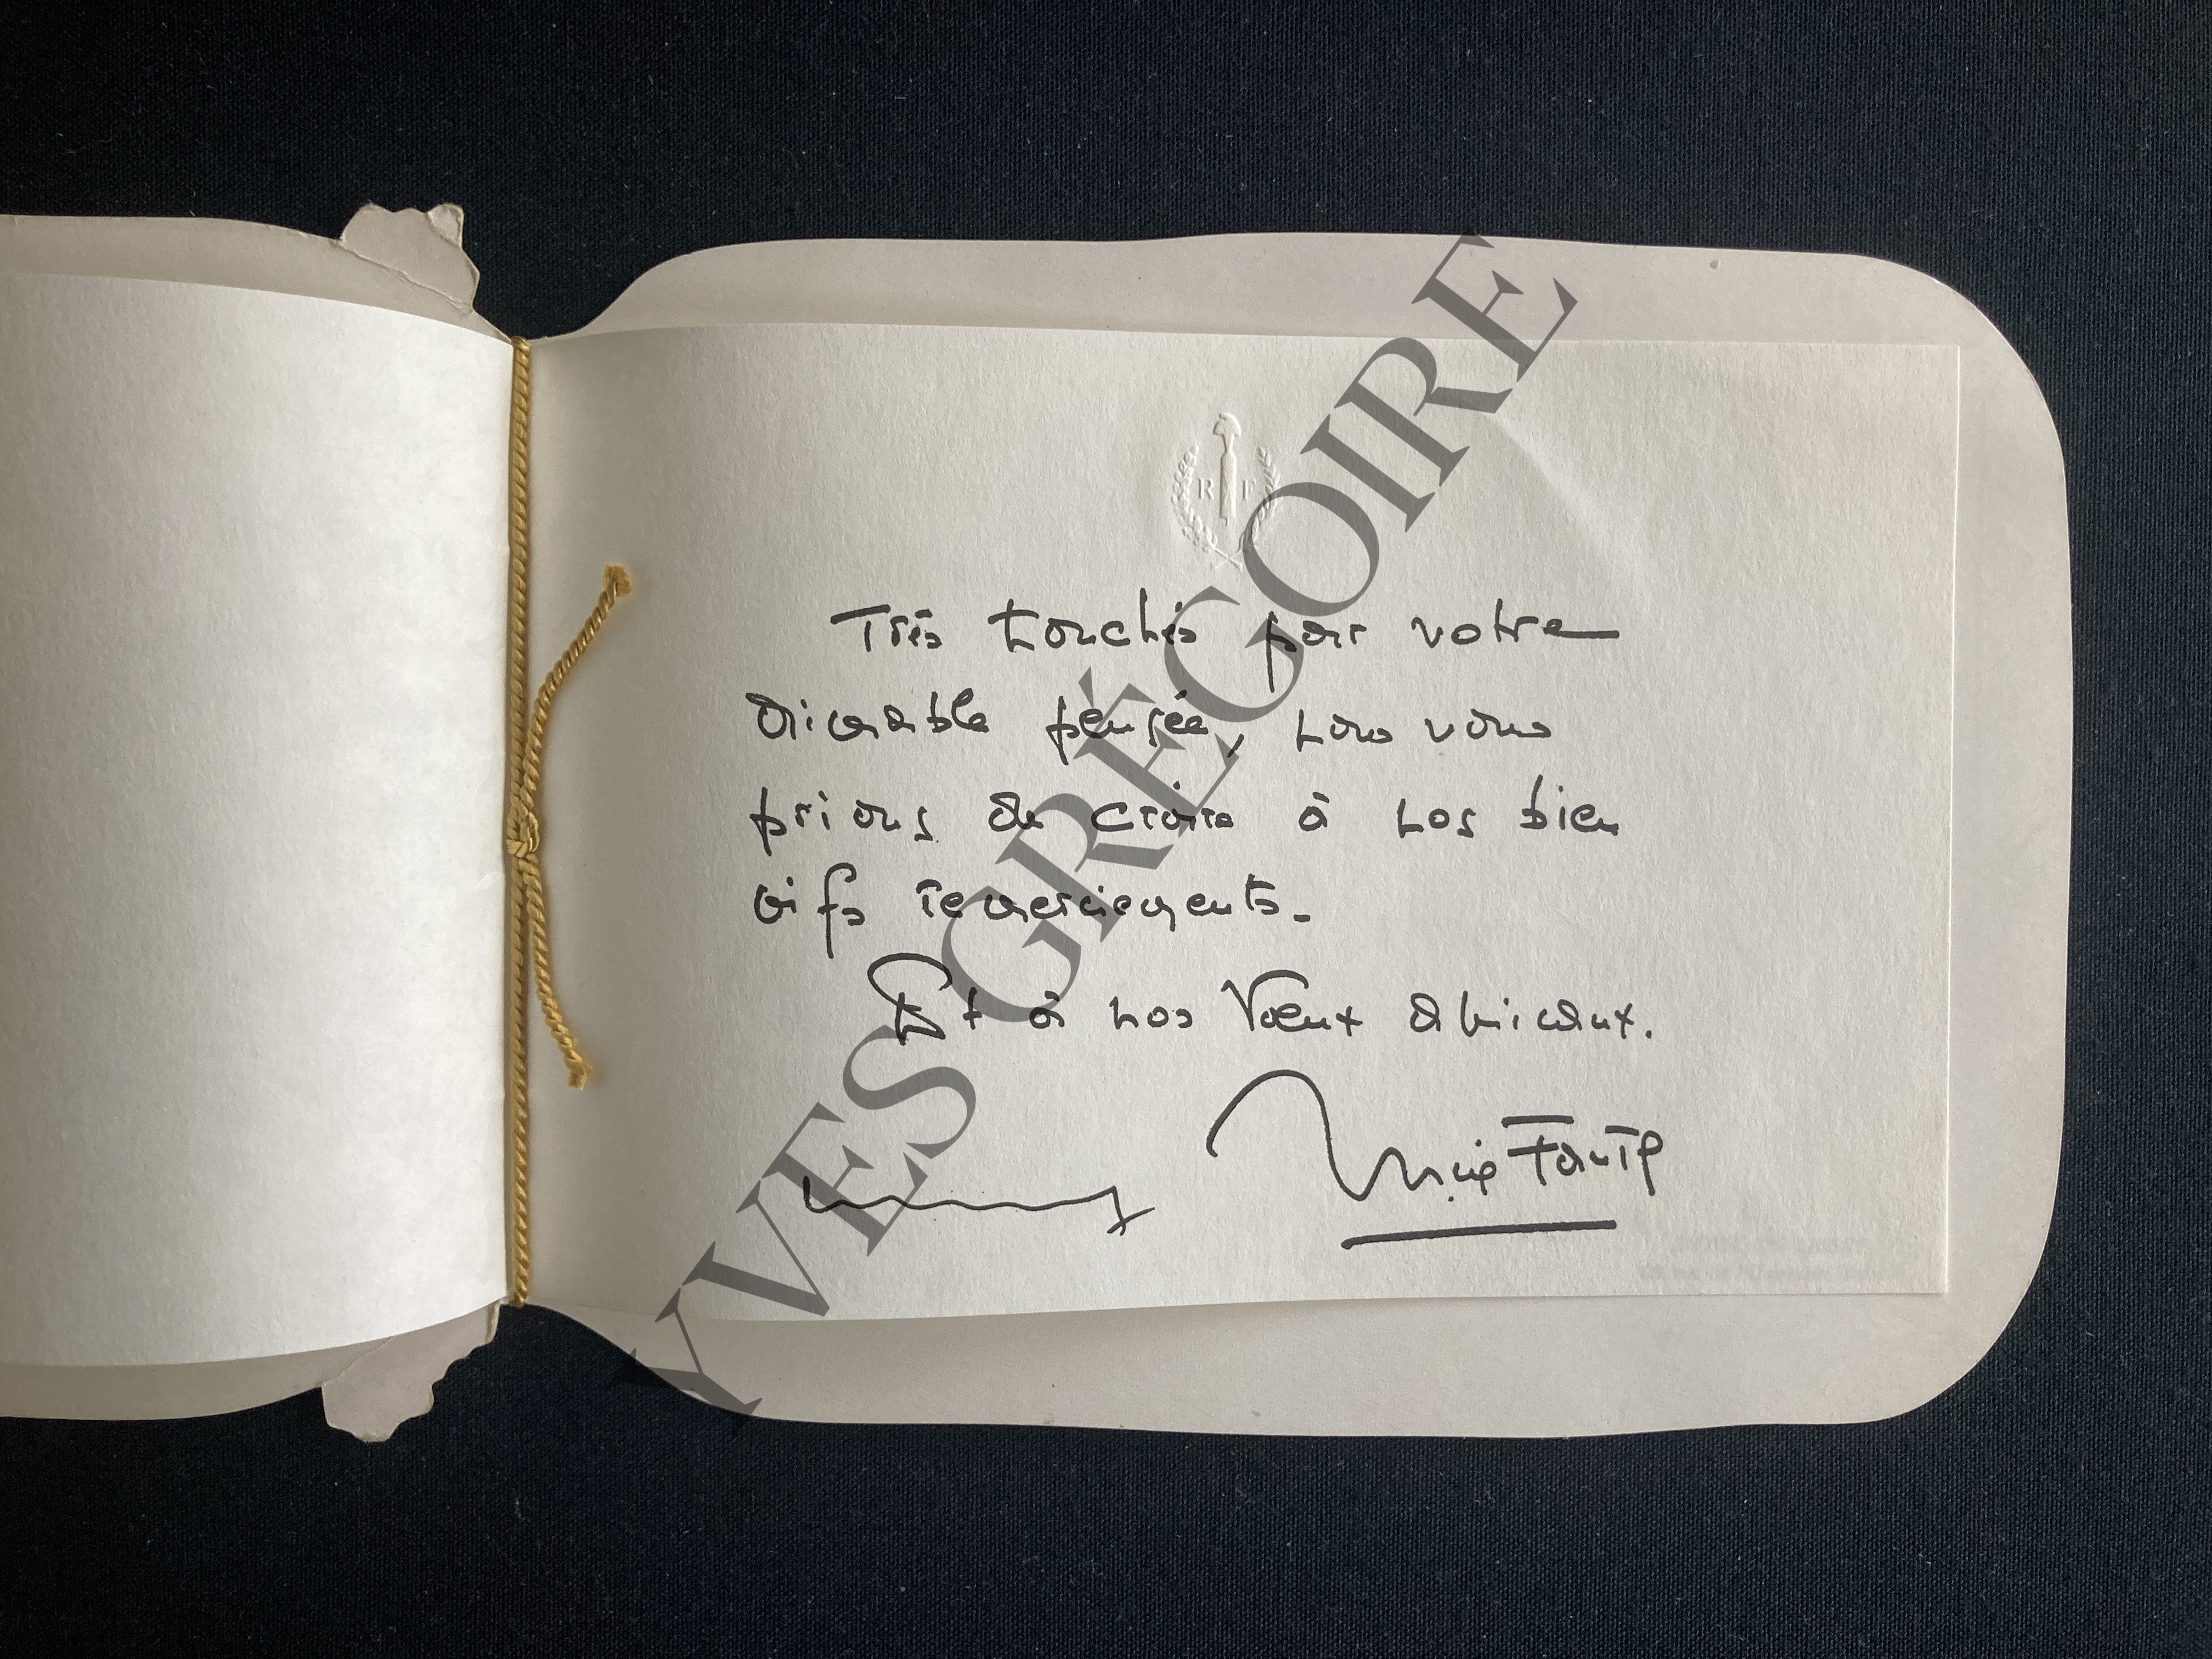 R F
Très touchés par votre
aimable pensée, nous vous
prions de croire à nos bien
vifs remerciements.
Et à nos Vœux amicaux.
YVES GRÉGOIRE